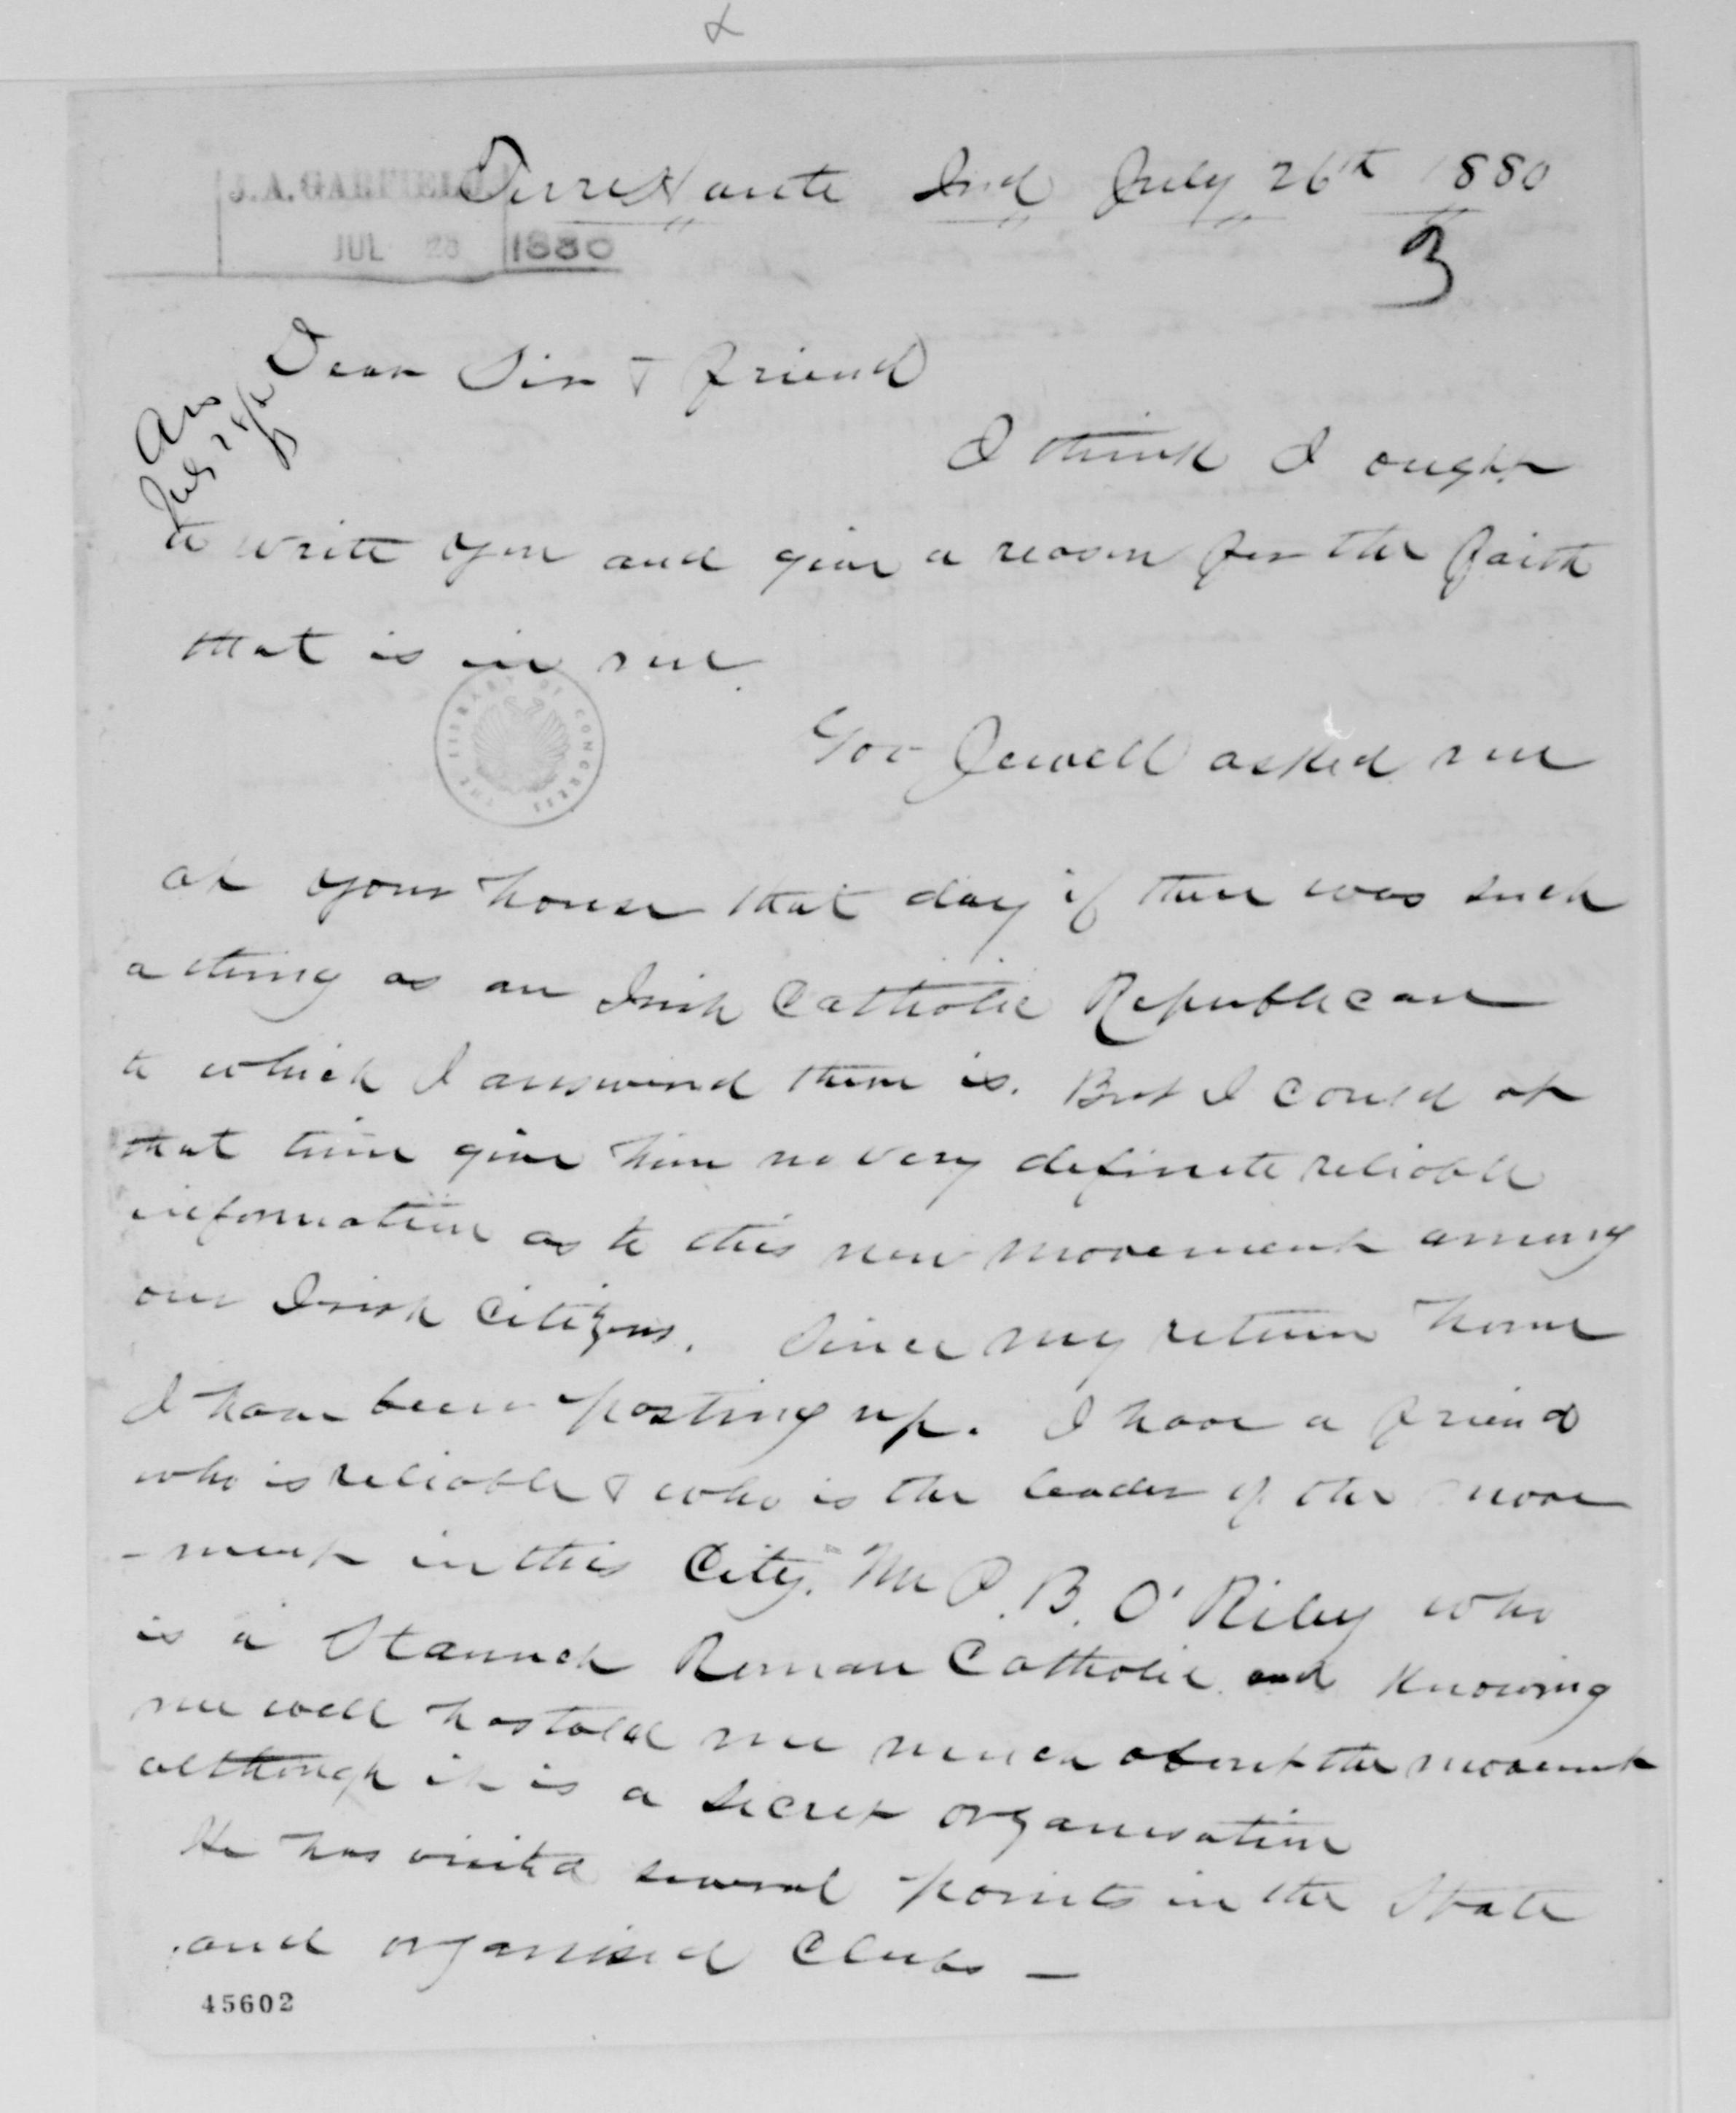 J. A. GARFIELD
JUL 28 1880
Terre Haute Ind July 26th 1880
3
Ans
July 28/80
Dear Sir & friend
I think I ought
to write you and give a reason for the faith
that is in me.
THE LIBRARY OF CONGRESS
Gov Jewell asked me
at your house that day if there was such
a thing as an Irish Catholic Republican
to which I answered there is. But I could at
that time give him no very definite reliable
information as to this new movement among
our Irish Citizens. Since my return home
I have been posting up. I have a friend
who is reliable & who is the leader of the move
-ment in this City. Mr P. B. O'Riley who
is a Staunch Roman Catholic and Knowing
me well has told me much about the movement
although it is a secret organisation
He has visited several points in the State
and organised Clubs —
45602